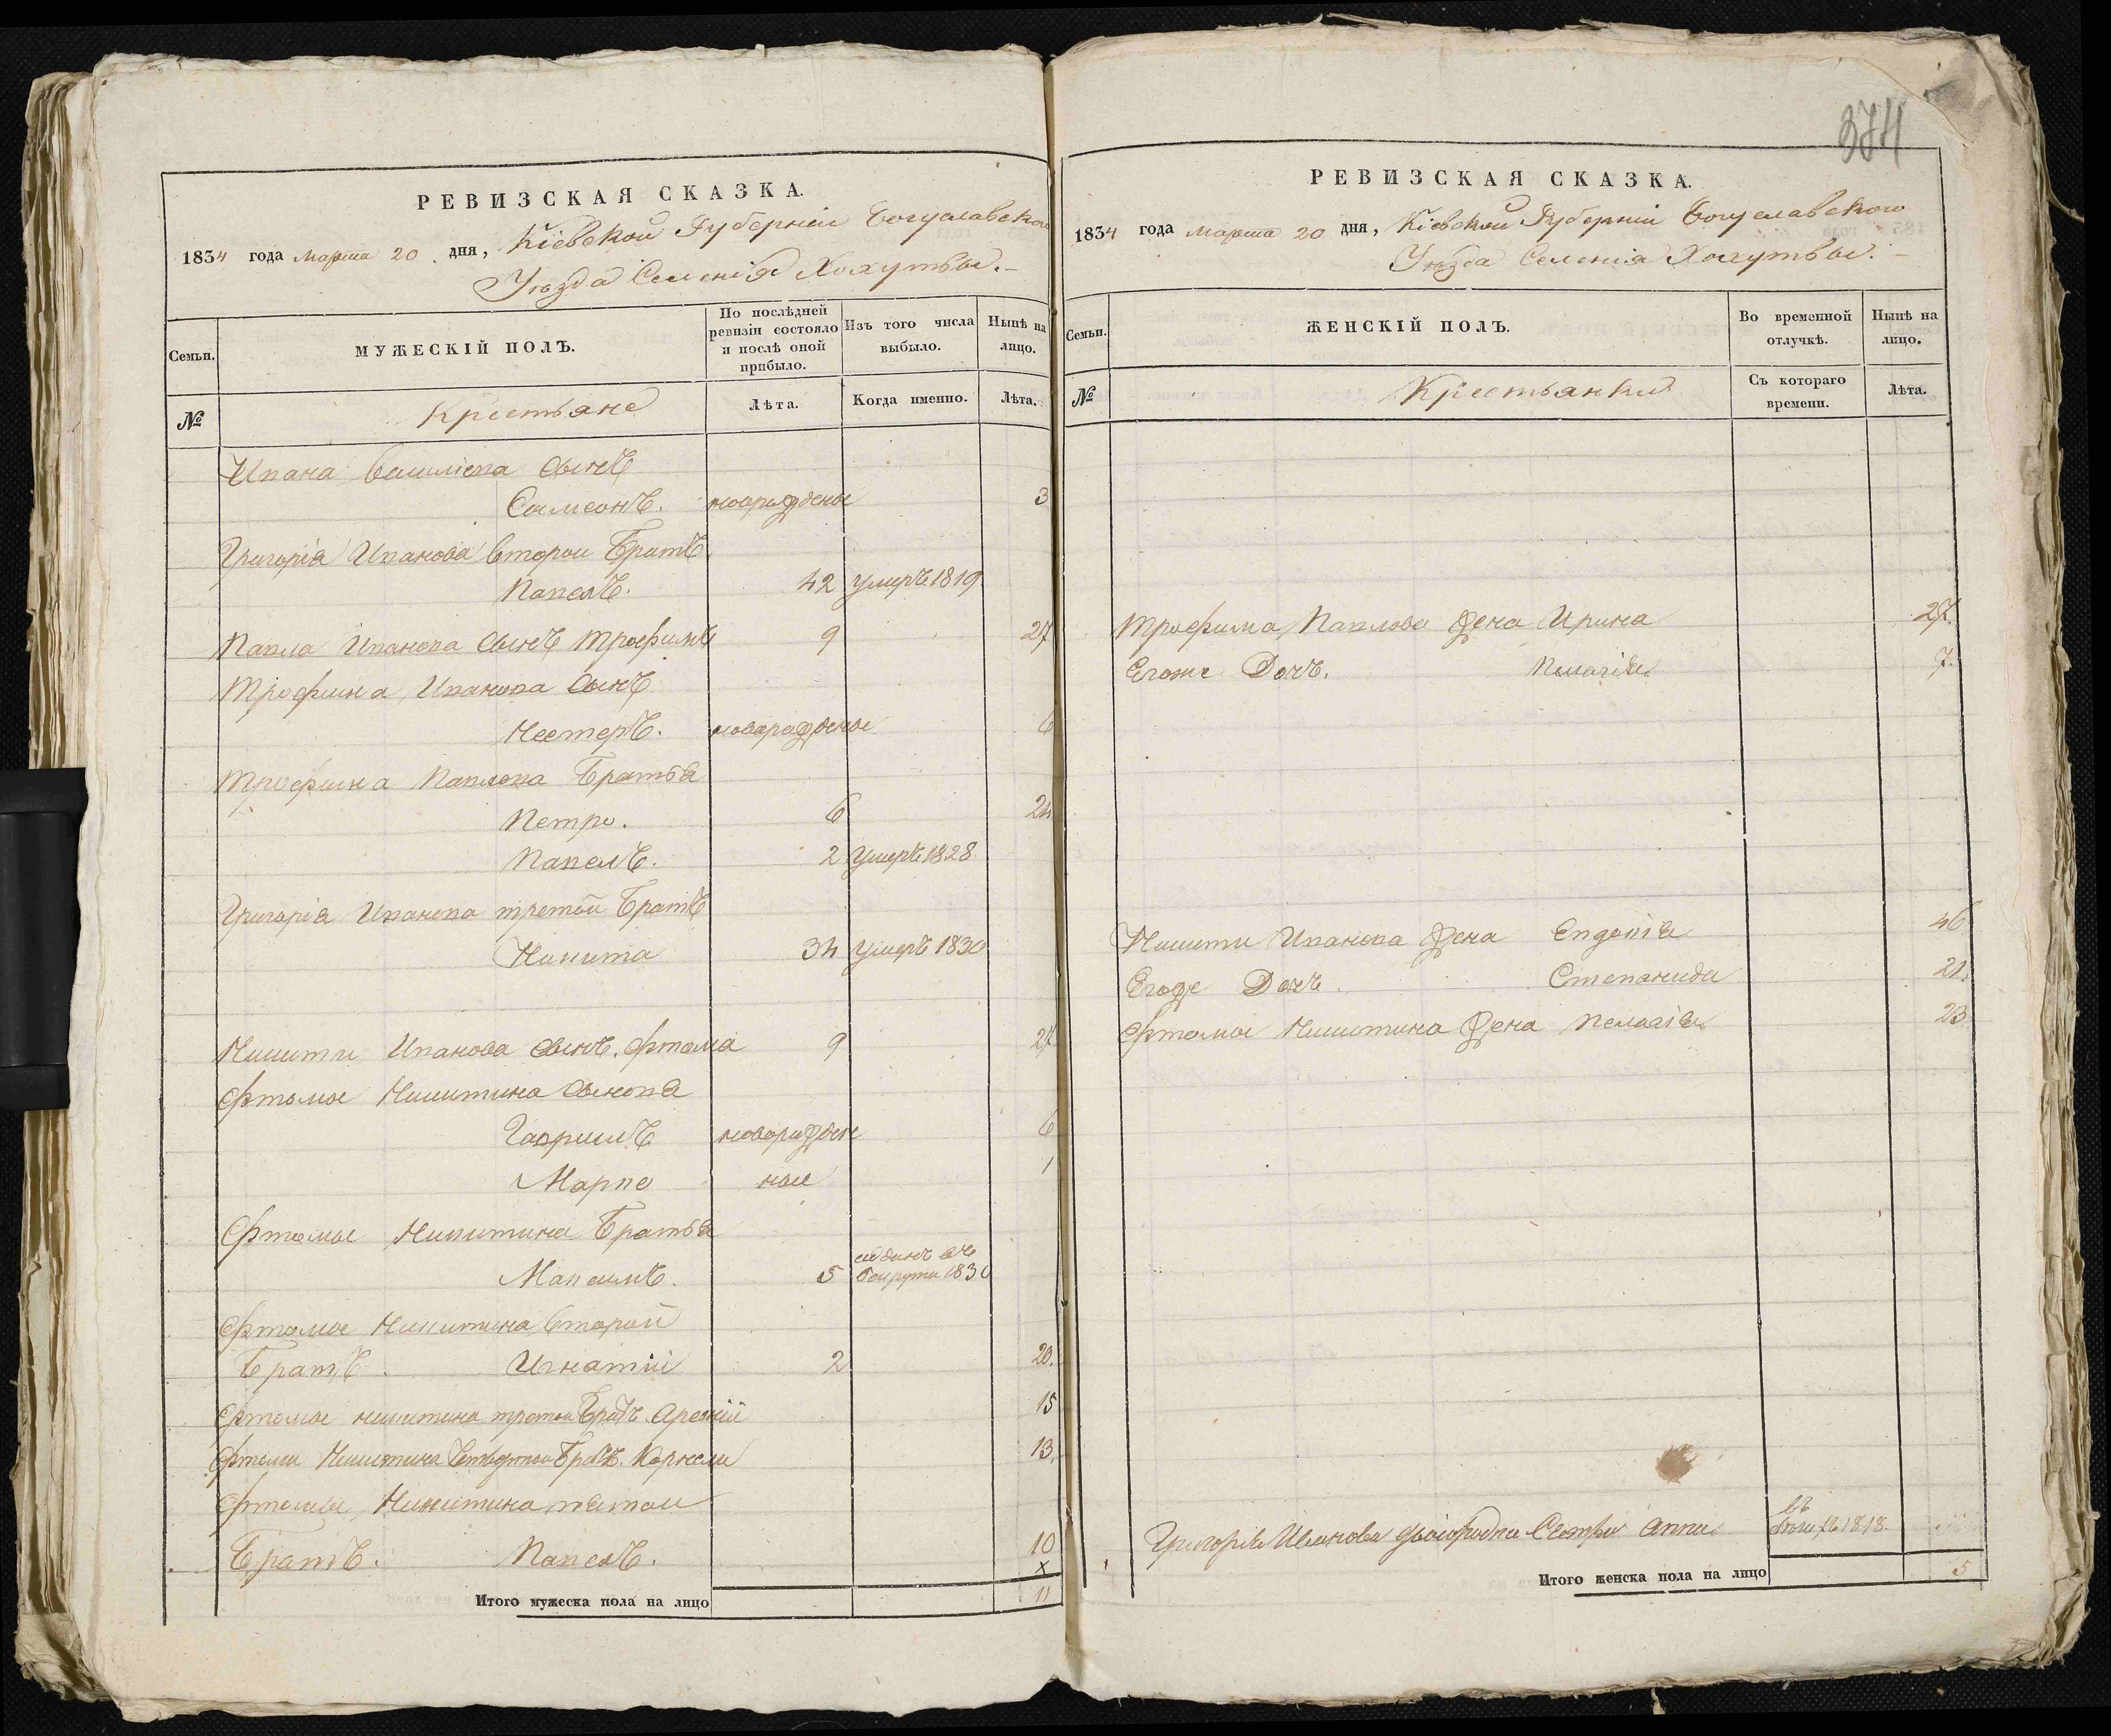 РЕВИЗСКАЯ СКАЗКА.
1834 года Марта 20 дня, Кіевской Губерніи Богуславского
Уезда Селенія Хохутвы.
Семьи. МУЖЕСКІЙ ПОЛЪ. По послѣдней ревизіи состояло и послѣ оной прибыло. Изъ того числа выбыло. Нынѣ на лицо.
№ Крестьяне Лѣта. Когда именно. Лѣта.
Ивана Василіева сынъ
Самсонъ. новорожденые 3
Григорія Иванова второй братъ
Павелъ. 42 умеръ 1819
Павла Иванова сынъ Трофимъ 9 27
Трофима Иванова сынъ
Нестеръ. новорожденые 6
Трофима Павлова братья
Петро. 6 24
Павелъ. 2 умеръ 1828
Григорія Иванова третой братъ
Никита 34 умеръ 1830
Никиты Иванова сынъ. Артома 9 27.
Артомы Никитина сыновя
Гаврилъ новорожден 6
Марко ные 1
Артомы Никитина братья
Максимъ. 5 рекруты 1830
Артомы Никитина второй
Братъ. Игнатій 2 20.
Артомы Никитина третой братъ Арсеній 15
Артомы Никитина четвертой братъ. Корнели 13.
Артомы Никитина пятой
Братъ. Павелъ. 10
х
Итого мужеска пола на лицо 11
374
РЕВИЗСКАЯ СКАЗКА.
1834 года Марта 20 дня, Кіевской Губерніи Богуславского
Уезда Селенія Хохутвы.
Семьи. ЖЕНСКІЙ ПОЛЪ. Во временной отлучкѣ. Нынѣ на лицо.
№ Крестьянки Съ котораго времени. Лѣта.
Трофима Павлова жена Ирина 27.
Егоже Дочъ. Пелагія 7.
Никиты Иванова жена Евдокія 46
Егоже Дочъ. Степанида 21.
Артомы Никитина жена Пелагія 23
Григорія Иванова двоюродна Сестра Анна въ 1818.
Итого женска пола на лицо 5